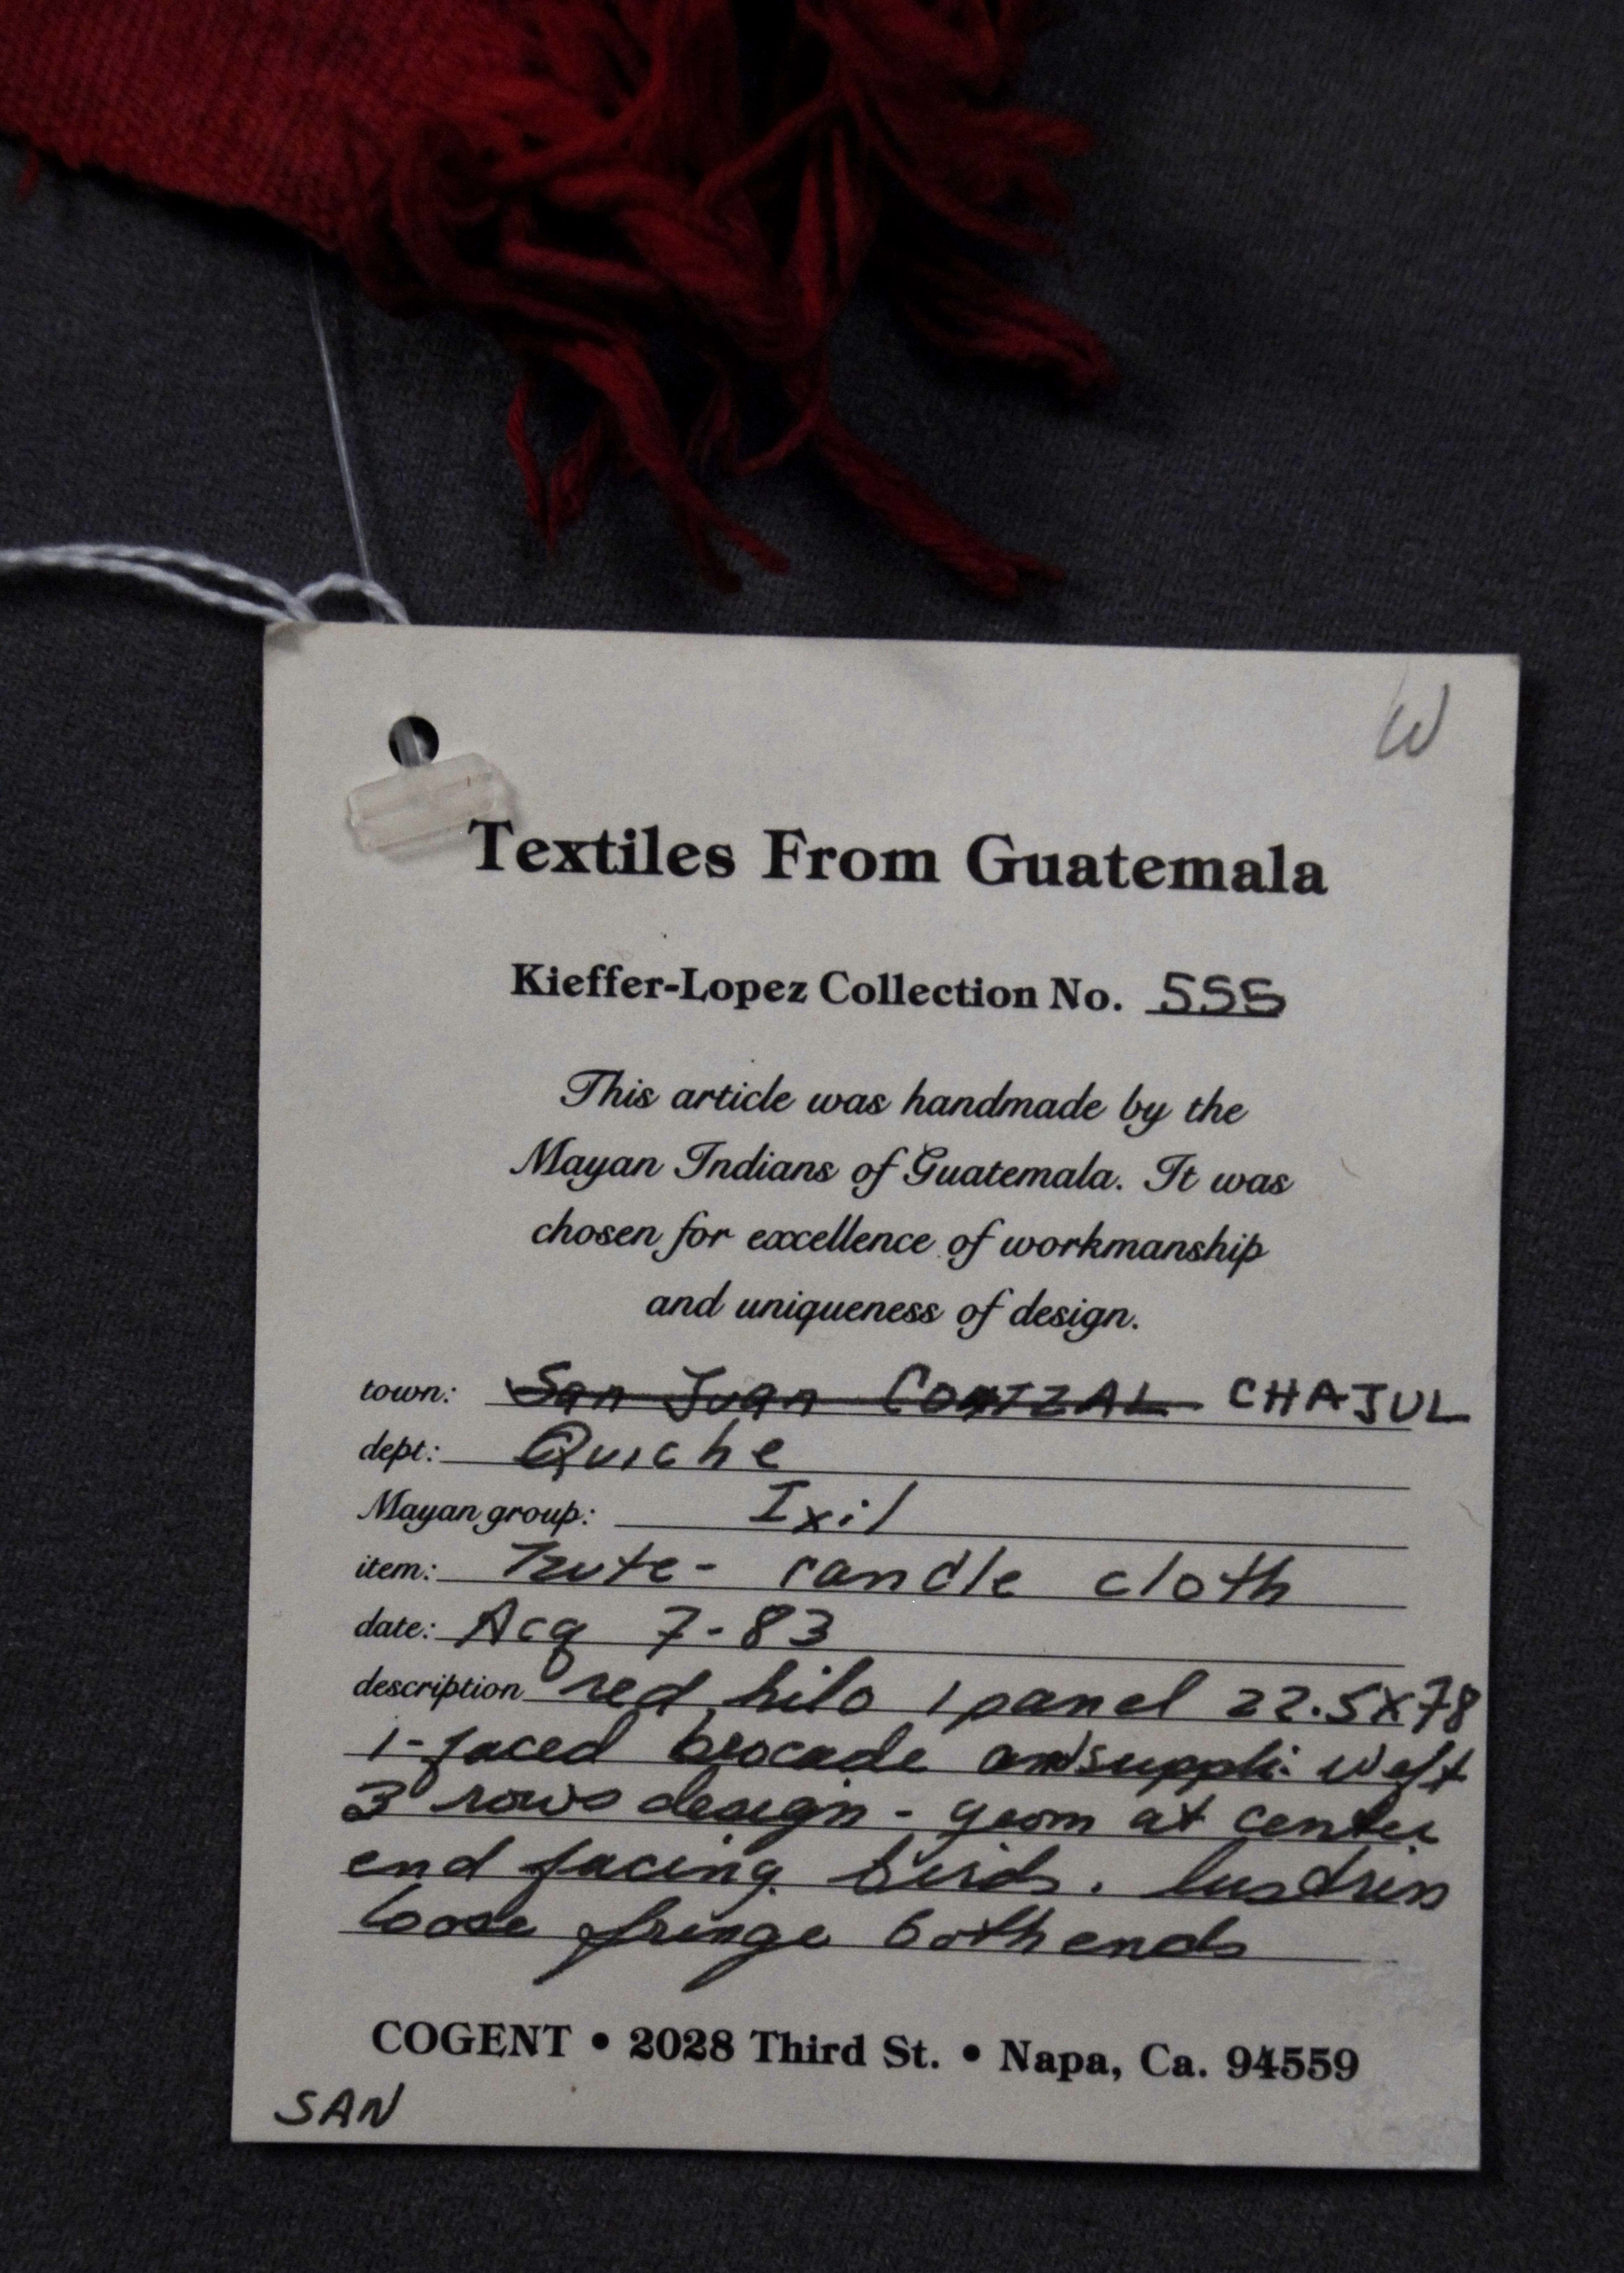 W
Textiles From Guatemala
Kieffer-Lopez Collection No. 555
This article was handmade by the
Mayan Indians of Guatemala. It was
chosen for excellence of workmanship
and uniqueness of design.
town: San Juan COTZAL CHAJUL
dept: Quiche
Mayan group: Ixil
item: Tzute- candle cloth
date: Acq 7-83
description red hilo 1 panel 22.5X78
1-faced brocade and suppli. weft
3 rows design - geom at center
end facing birds. lustrin
loose fringe both ends
COGENT • 2028 Third St. • Napa, Ca. 94559
SAN